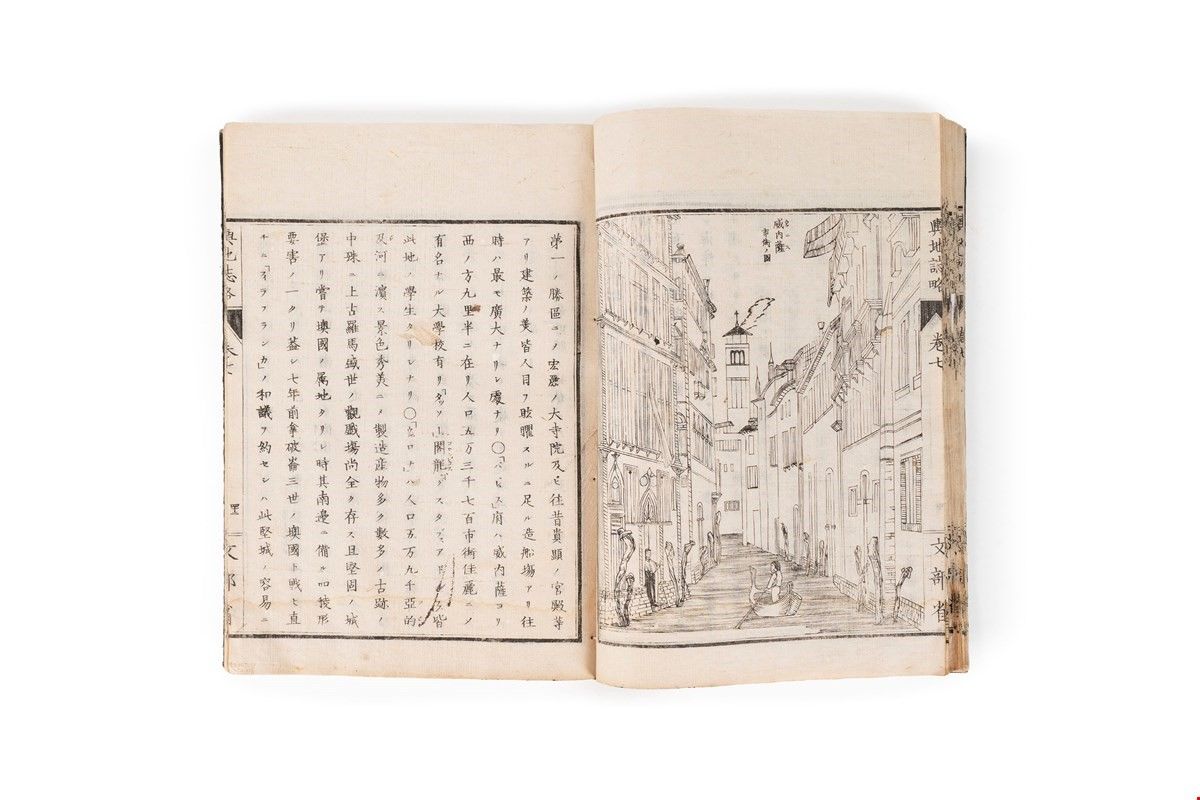 輿地誌略
卷七
文部省
威内薩
市街ノ圖
第一ノ勝區ニ〆宏麗ノ大寺院及ヒ往昔貴顯ノ宮殿等
アリ建築ノ美皆人目ヲ眩曜スルニ足ル造船塲アリ往
時ハ最モ廣大ナリシ處ナリ〇府ハ威内薩ヨリ
西ノ方九里半ニ在リ人口五万三千七百市街佳麗ニ〆
有名ナル大學校有リ「タッソー」閣龍「グスタヴ、アドルフ」皆
此地ノ學生タリシナリ〇「ロナ」ハ人口五万九千亞的
及河ニ濱ス景色秀美ニ〆製造産物多ク數多ノ古跡ノ
中殊ニ上古羅馬盛世ノ觀戲塲尚全ク存ス且堅固ノ城
堡アリ嘗テ澳國ノ属地タリシ時其南邊ニ備ル四稜形
要害ノ一タリ蓋シ七年前拿破崙三世ノ澳國ト戰ヒ直
チニ「イラフランカ」ノ和議ヲ約セシハ此堅城ノ容易ニ
輿地誌略
卷七
文部省